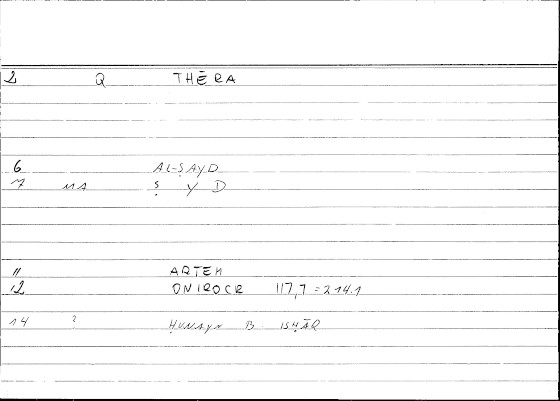 2 Q THĒRA
6 AL-ṢAYD
7 MA Ṣ Y D
11 ARTEM
12 ONIROCR 117,7 = 214.1
14 ? ḤUNAYN B. ISḤĀQ